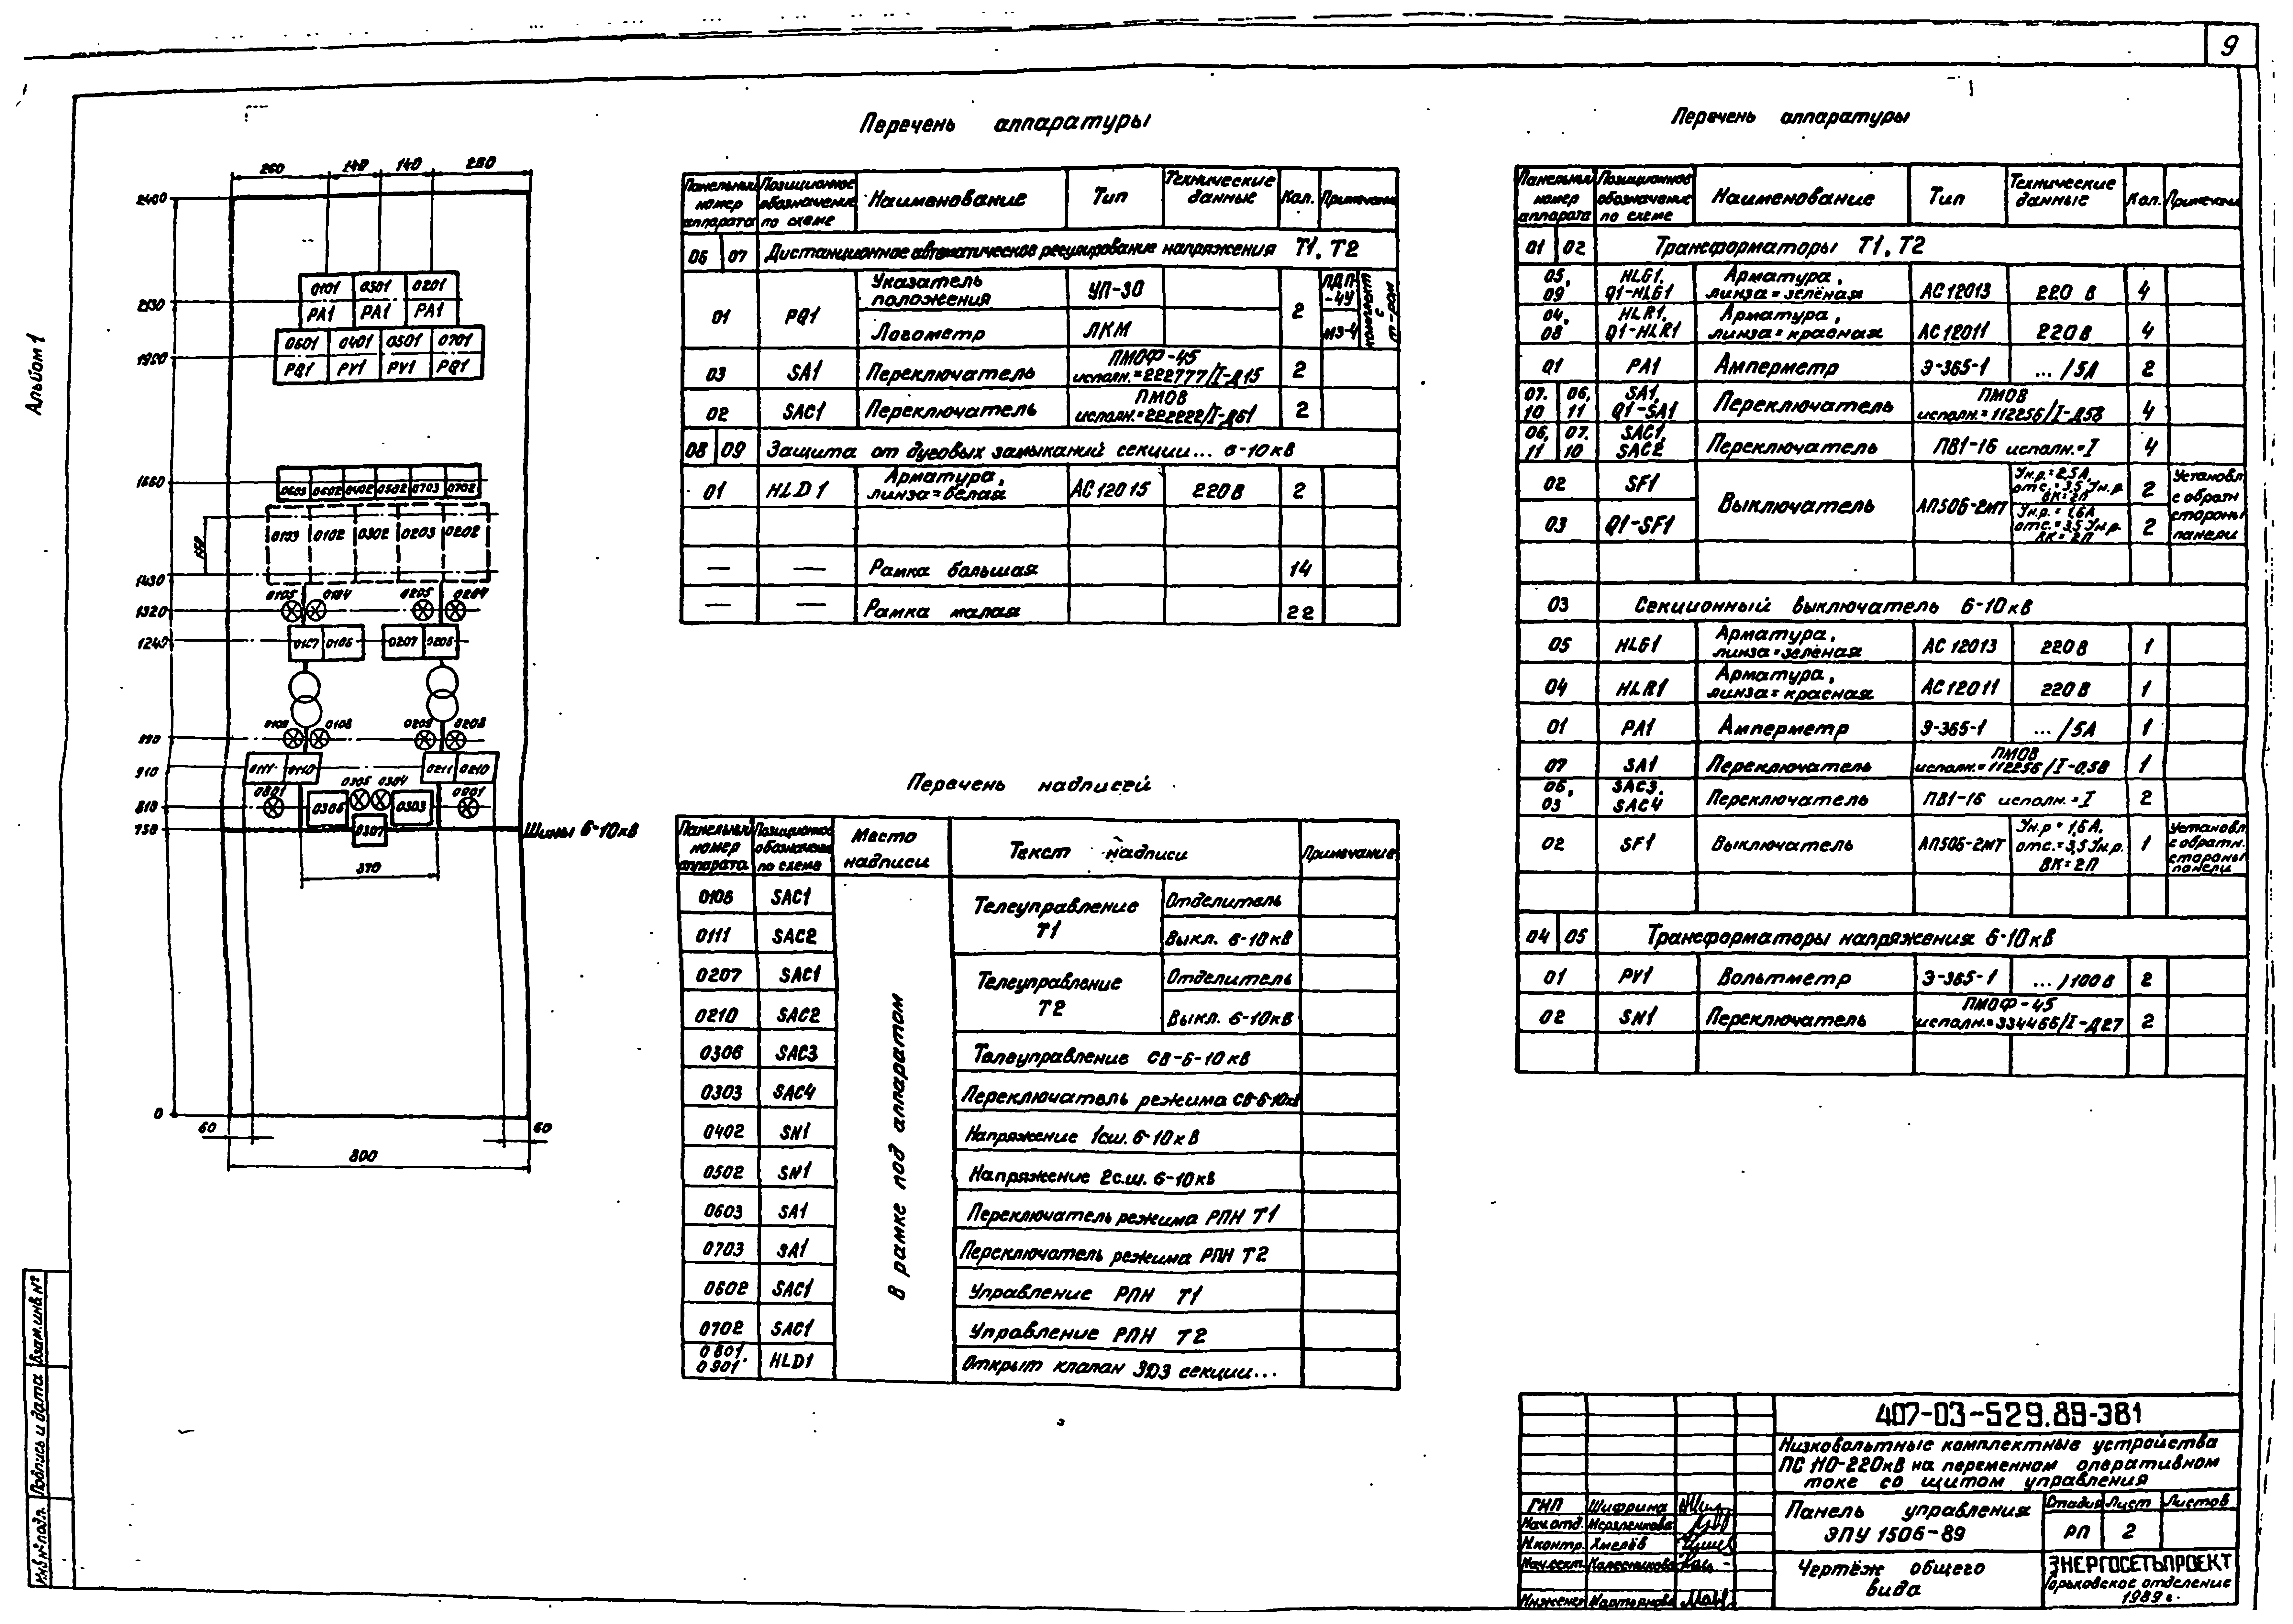 9
Альбом 1
260 140 140 260
2400
2130
1980
1660
1430
1320
1240
910
810
750
0
0101 0301 0201
PA1 PA1 PA1
0601 0401 0501 0701
PQ1 PV1 PV1 PQ1
0603 0602 0402 0502 0703 0702
0103 0102 0302 0203 0202
0105 0104 0205 0204
0107 0106 0207 0206
0109 0108 0209 0208
0111 0110 0211 0210
0801 0305 0304 0901
0306 0303
0307
Шины 6-10кВ
370
60 60
800
Перечень аппаратуры
Панельный номер аппарата
Позиционное обозначение по схеме
Наименование
Тип
Технические данные
Кол.
Примечание
06 07 Дистанционное автоматическое регулирование напряжения Т1, Т2
01 PQ1 Указатель положения УП-30 2
Логометр ЛКМ
03 SA1 Переключатель ПМОФ-45 исполн.=222777/I-Д15 2
02 SAC1 Переключатель ПМОВ исполн.=222222/I-Д61 2
08 09 Защита от дуговых замыканий секции... 6-10кВ
01 HLD1 Арматура, линза=белая АС12015 220В 2
— — Рамка большая 14
— — Рамка малая 22
Перечень надписей
Панельный номер аппарата
Позиционное обозначение по схеме
Место надписи
Текст надписи
Примечание
В рамке под аппаратом
0106 SAC1 Телеуправление Т1 Отделитель
0111 SAC2 Выкл. 6-10кВ
0207 SAC1 Телеуправление Т2 Отделитель
0210 SAC2 Выкл. 6-10кВ
0306 SAC3 Телеуправление СВ-6-10кВ
0303 SAC4 Переключатель режима СВ-6-10кВ
0402 SN1 Напряжение 1сш. 6-10кВ
0502 SN1 Напряжение 2с.ш. 6-10кВ
0603 SA1 Переключатель режима РПН Т1
0703 SA1 Переключатель режима РПН Т2
0602 SAC1 Управление РПН Т1
0702 SAC1 Управление РПН Т2
0801, 0901 HLD1 Открыт клапан ЗДЗ секции...
Перечень аппаратуры
Панельный номер аппарата
Позиционное обозначение по схеме
Наименование
Тип
Технические данные
Кол.
Примечан.
01 02 Трансформаторы Т1, Т2
05, 09 HLG1, Q1-HLG1 Арматура, линза=зелёная АС12013 220 В 4
04, 08 HLR1, Q1-HLR1 Арматура, линза=красная АС12011 220В 4
01 PA1 Амперметр Э-365-1 .../5А 2
07, 10 06, 11 SA1, Q1-SA1 Переключатель ПМОВ исполн.=112256/I-Д58 4
06, 11 07, 10 SAC1, SAC2 Переключатель ПВ1-16 исполн.=I 4
02 SF1 Выключатель АП50Б-2МТ Iн.р.=2,5А, отс.=3,5 Iн.р. ВК=2П 2 Установл. с обратн. стороны панели
03 Q1-SF1 Iн.р.=1,6А отс.=3,5 Iн.р. ВК=2П 2
03 Секционный выключатель 6-10кВ
05 HLG1 Арматура, линза=зелёная АС12013 220В 1
04 HLR1 Арматура, линза=красная АС12011 220В 1
01 PA1 Амперметр Э-365-1 .../5А 1
07 SA1 Переключатель ПМОВ исполн.=112256/I-Д58 1
06, 03 SAC3, SAC4 Переключатель ПВ1-16 исполн.=I 2
02 SF1 Выключатель АП50Б-2МТ Iн.р=1,6А, отс.=3,5 Iн.р. ВК=2П 1 Установл. с обратн. стороны панели
04 05 Трансформаторы напряжения 6-10кВ
01 PV1 Вольтметр Э-365-1 .../100В 2
02 SN1 Переключатель ПМОФ-45 исполн.=334466/I-Д27 2
407-03-529.89-ЭВ1
Низковольтные комплектные устройства
ПС 110-220кВ на переменном оперативном
токе со щитом управления
Панель управления
ЭПУ 1506-89
Стадия Лист Листов
РП 2
Чертёж общего
вида
ЭНЕРГОСЕТЬПРОЕКТ
Горьковское отделение
1989г.
ГИП Шифрина
Нач.отд.
Н.контр. Хмелёв
Нач.сект. Колесникова
Инженер
Инв.№подл. Подпись и дата Взам.инв.№